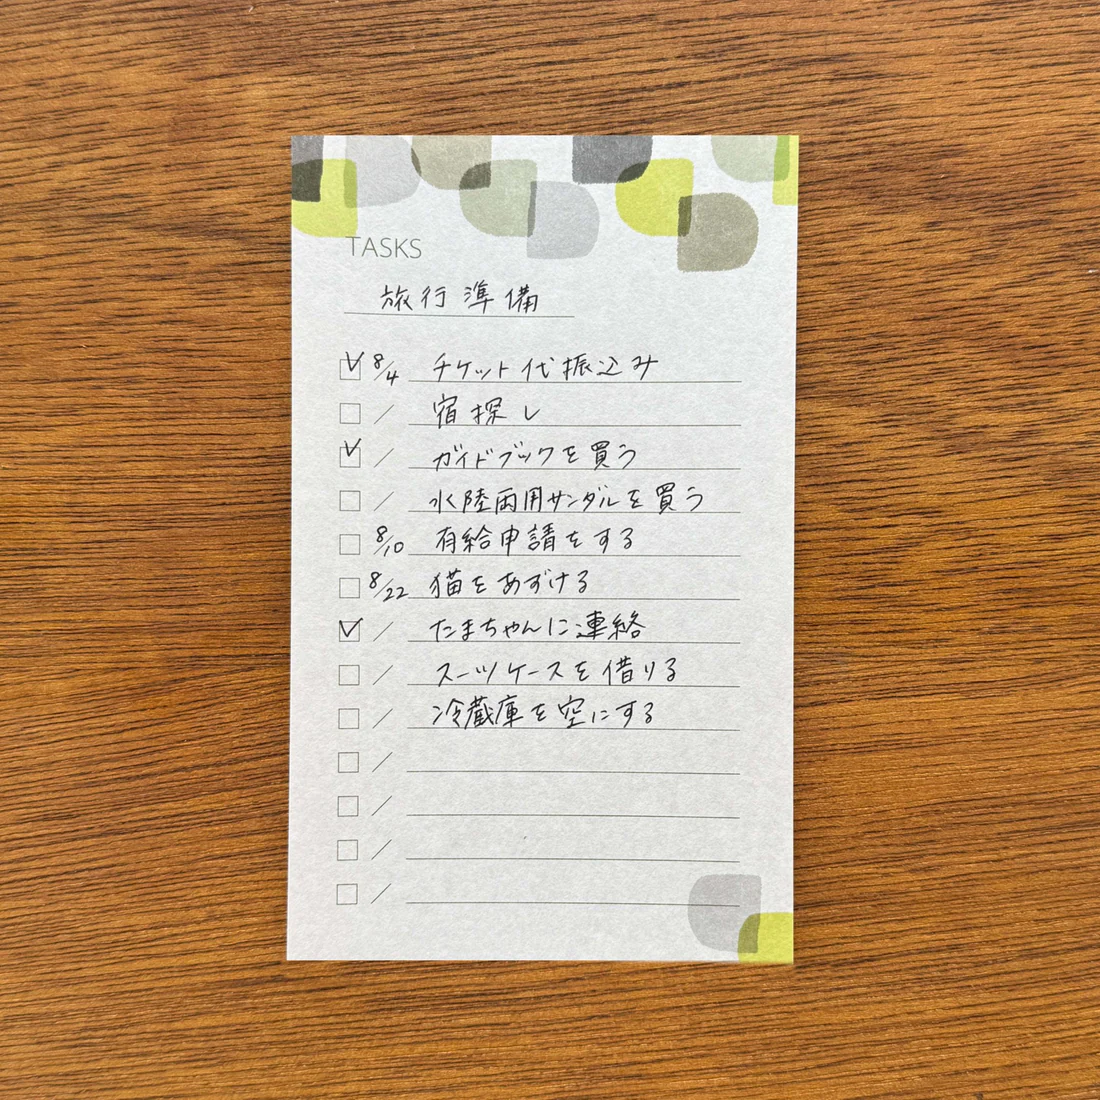 TASKS
旅行準備
8/4 チケット代振込み
/ 宿探し
/ ガイドブックを買う
/ 水陸両用サンダルを買う
8/10 有給申請をする
8/22 猫をあずける
/ たまちゃんに連絡
/ スーツケースを借りる
/ 冷蔵庫を空にする
/
/
/
/